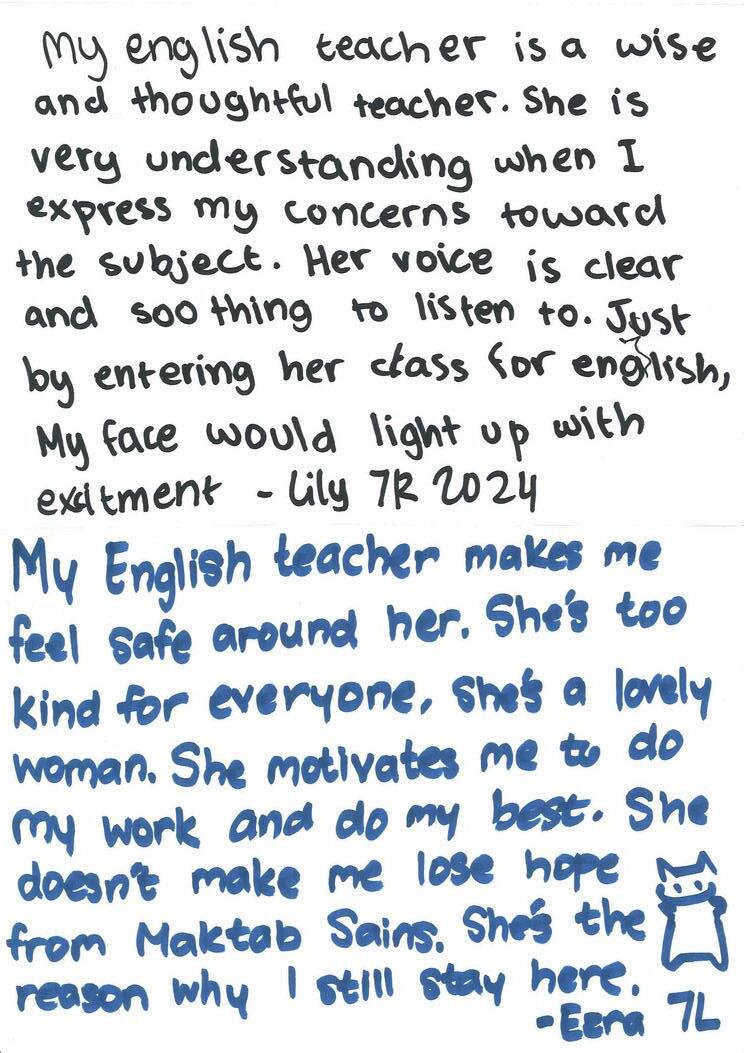 My english teacher is a wise
and thoughtful teacher. She is
very understanding when I
express my concerns toward
the subject. Her voice is clear
and soothing to listen to. Just
by entering her class for english,
My face would light up with
excitment - Lily 7R 2024
My English teacher makes me
feel safe around her. She's too
kind for everyone, she's a lovely
woman. She motivates me to do
my work and do my best. She
doesn't make me lose hope
from Maktab Sains. She's the
reason why I still stay here.
-Ezra 7L